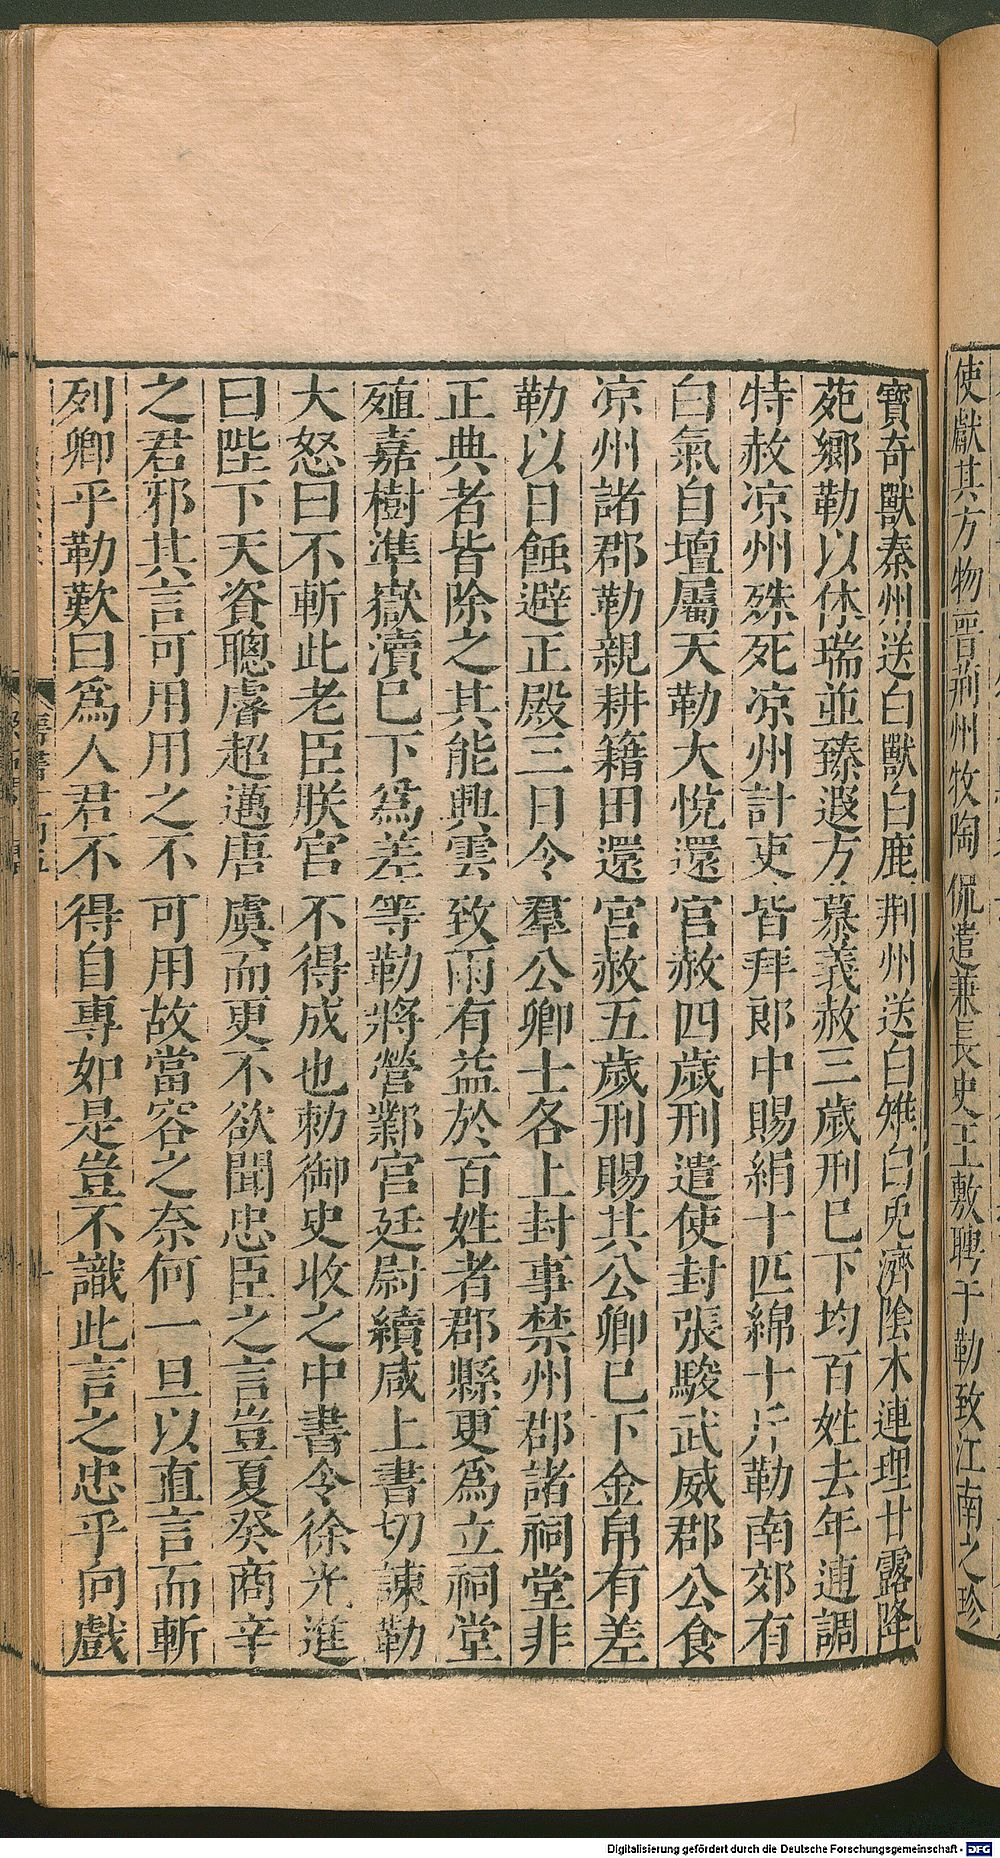 使獻其方物晉荊州牧陶侃遣兼長史王敷聘于勒致江南之珍
寶奇獸秦州送白獸白鹿荆州送白雉白兎濟隂木連理甘露降
苑鄉勒以休瑞並臻遐方慕義赦三歲刑巳下均百姓去年逋調
特赦凉州殊死凉州計吏皆拜郎中賜絹十匹綿十斤勒南郊有
白氣自壇屬天勒大悅還宫赦四歲刑遣使封張駿武威郡公食
凉州諸郡勒親耕籍田還宫赦五歲刑賜其公卿巳下金帛有差
勒以日蝕避正殿三日令羣公卿士各上封事禁州郡諸祠堂非
正典者皆除之其能興雲致雨有益於百姓者郡縣更爲立祠堂
殖嘉樹準嶽瀆巳下爲差等勒將營鄴宫廷尉續咸上書切諫勒
大怒曰不斬此老臣朕宫不得成也勑御史收之中書令徐光進
曰陛下天資聰睿超邁唐虞而更不欲聞忠臣之言豈夏癸商辛
之君邪其言可用用之不可用故當容之奈何一旦以直言而斬
列卿乎勒歎曰爲人君不得自專如是豈不識此言之忠乎向戲
Digitalisierung gefördert durch die Deutsche Forschungsgemeinschaft - DFG